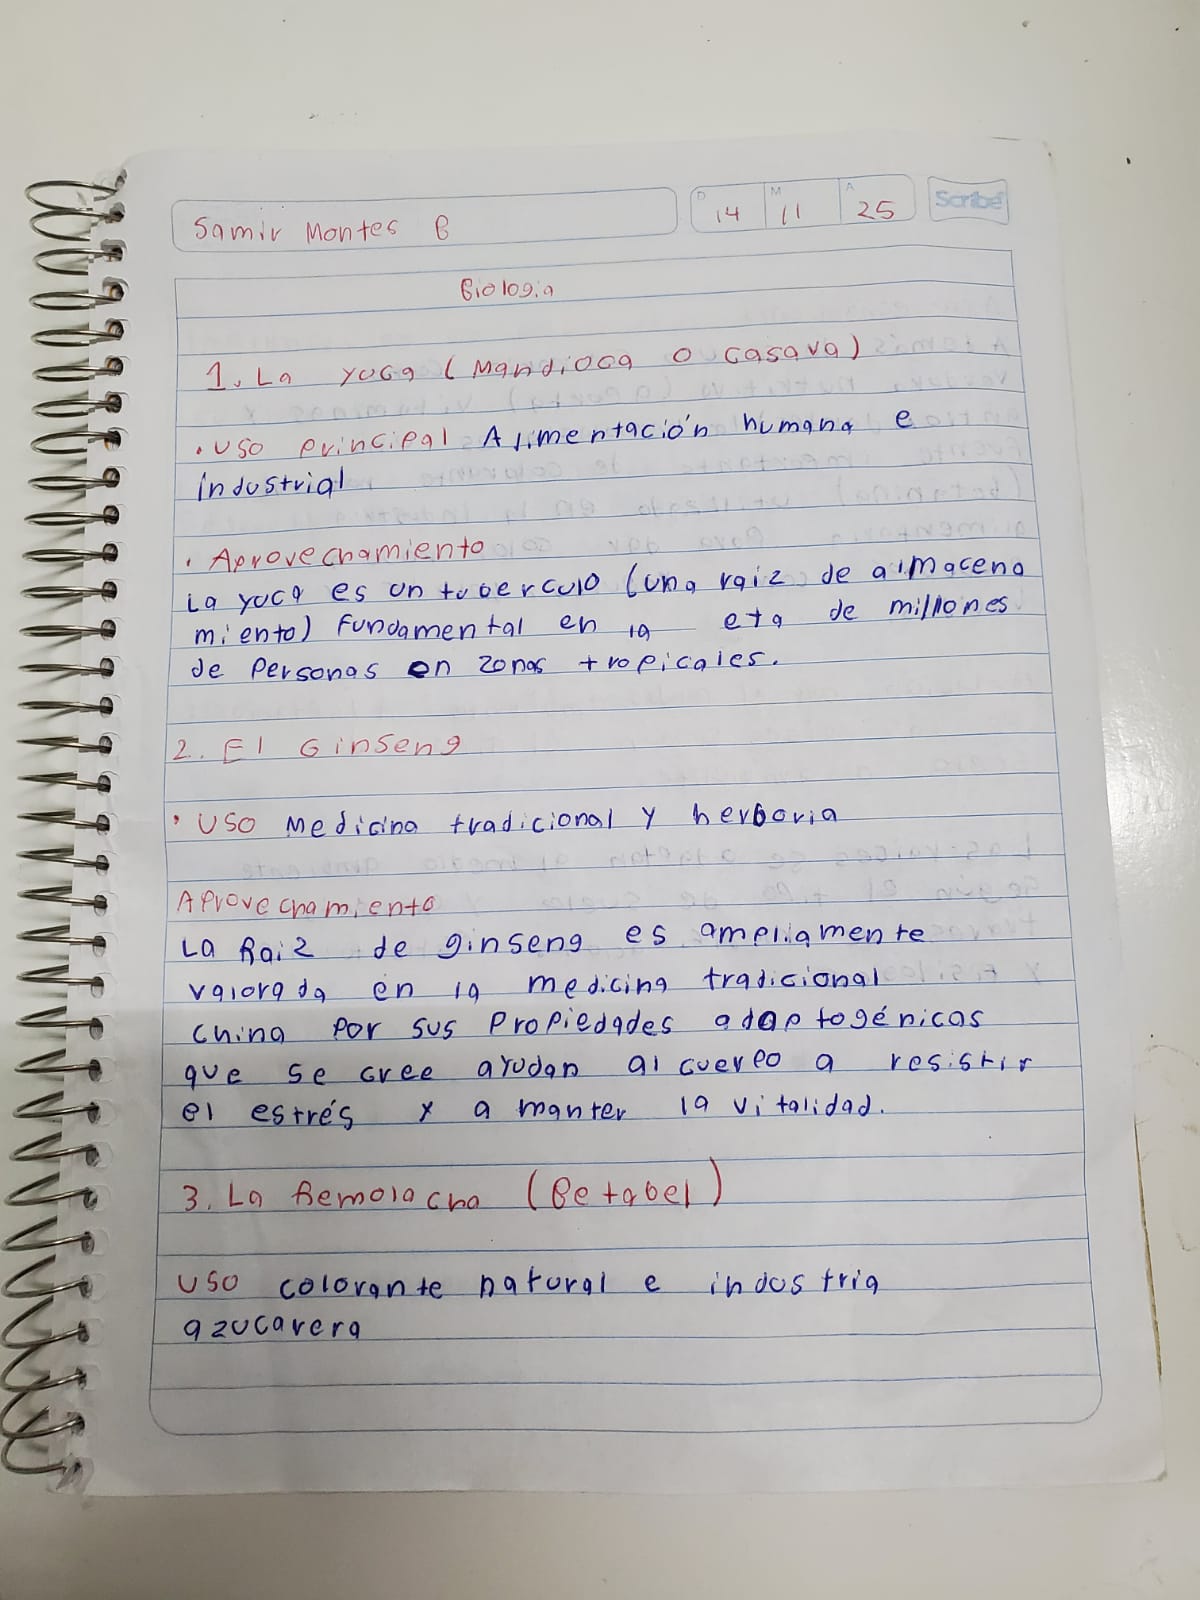 Samir Montes B
D 14 M 11 A 25
Scribe
Biologia
1. La yuca (Mandioca o casava)
• Uso principal Alimentación humana e
industrial
• Aprovechamiento
La yuca es un tuberculo (una raiz de almacena
miento) Fundamental en la eta de millones
de personas en zonas tropicales.
2. El Ginseng
• Uso Medicina tradicional y herboria
Aprovechamiento
La Raiz de ginseng es ampliamente
valorada en la medicina tradicional
china por sus propiedades adaptogénicas
que se cree ayudan al cuerpo a resistir
el estrés y a manter la vitalidad.
3. La Remolacha (Betabel)
Uso colorante natural e industria
azucarera